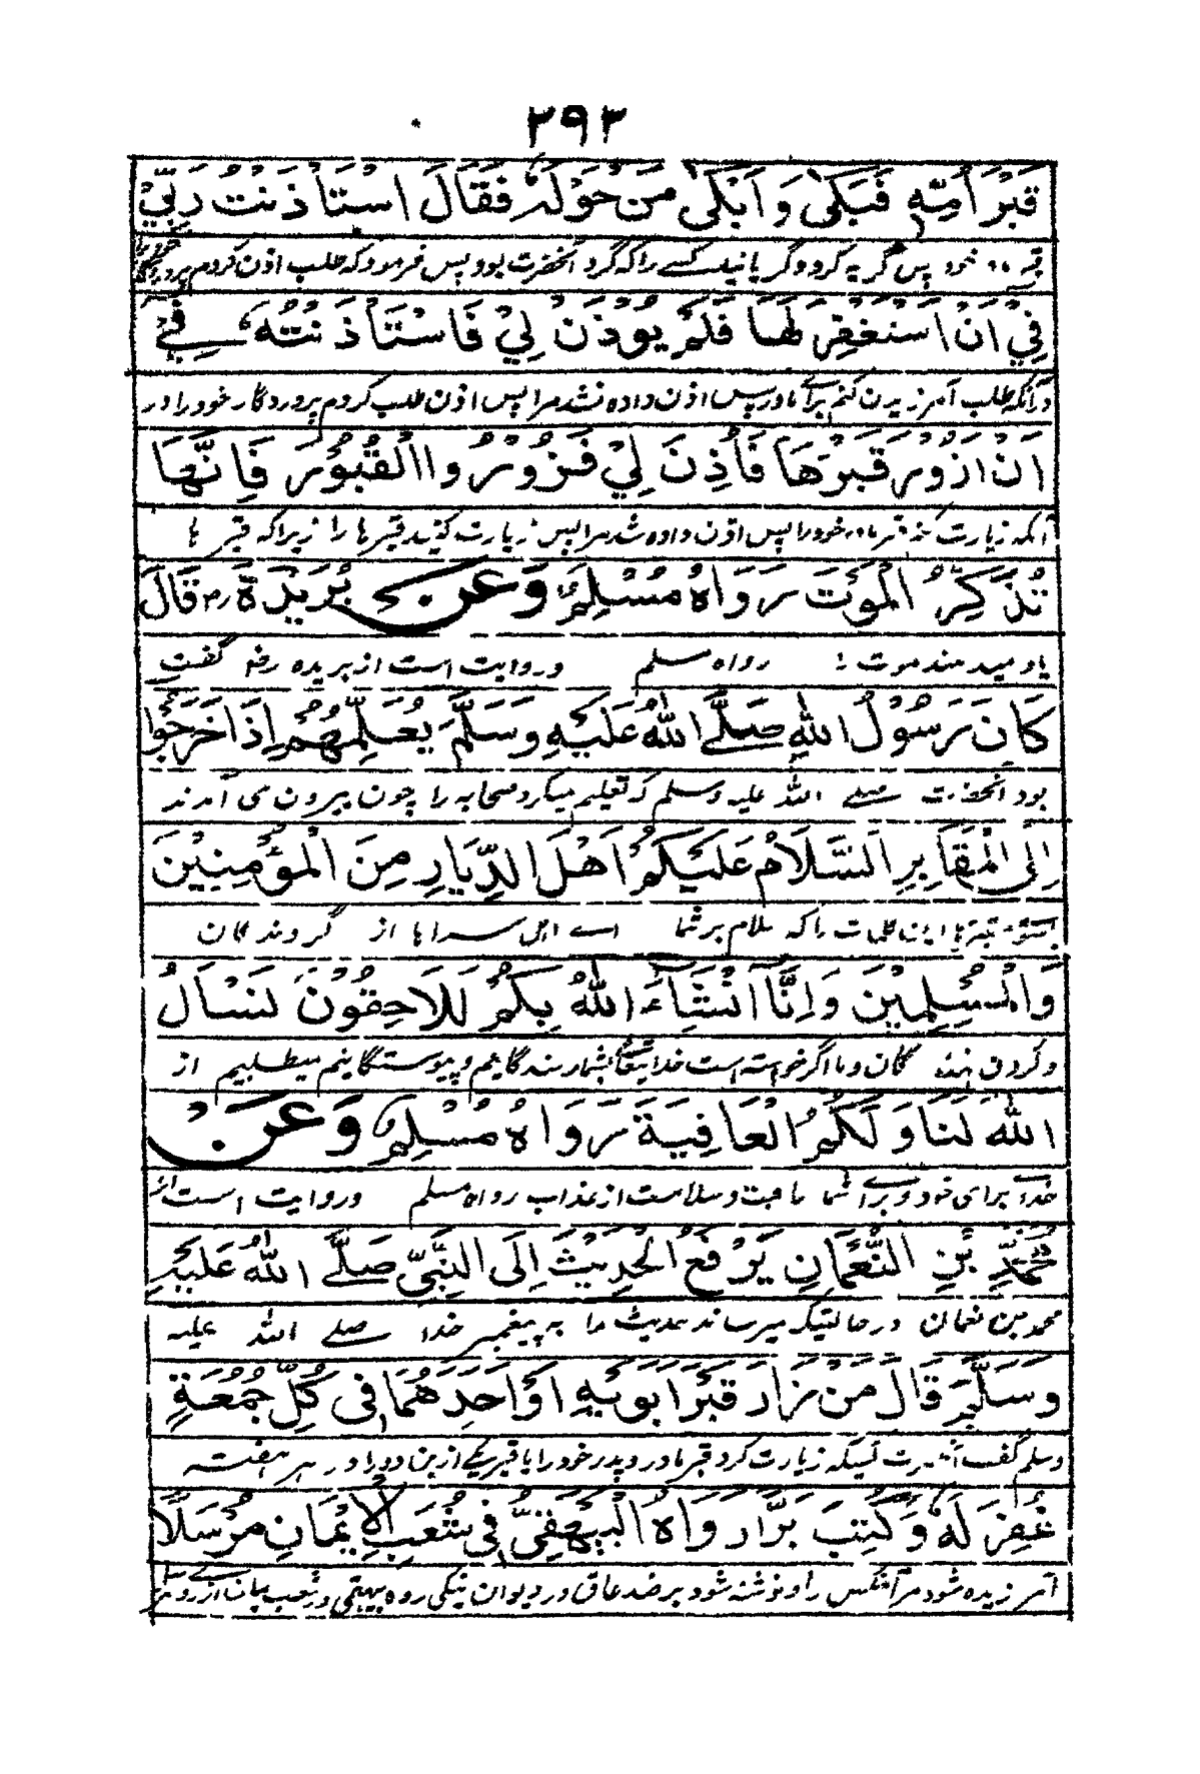 ۲۹۳
قَبْرَ اُمِّهٖ فَبَكٰى وَاَبْكٰى مَنْ حَوْلَهٗ فَقَالَ اسْتَأْذَنْتُ رَبِّيْ
خود پس گریه کرد و گریانید کسے را که گرد آنحضرت بود پس فرمود که طلب اذن کردم
فِيْ اَنْ اَسْتَغْفِرَ لَهَا فَلَمْ يُوْذَنْ لِيْ فَاسْتَأْذَنْتُهٗ فِيْ
در آنکه طلب آمرزیدن کنم برائے مادر پس اذن داده نشد مرا پس اذن طلب کردم پروردگار خود را در
اَنْ اَزُوْرَ قَبْرَهَا فَأُذِنَ لِيْ فَزُوْرُوا الْقُبُوْرَ فَاِنَّهَا
آنکه زیارت کنم قبر مادر خود را پس اذن داده شد مرا پس زیارت کنید قبر ها را زیرا که قبر ها
تُذَكِّرُ الْمَوْتَ رَوَاهُ مُسْلِمٌ وَعَنْ بُرَيْدَةَ رض قَالَ
یاد میدهند موت را رواه مسلم وروایت است از بریده رضه گفت
كَانَ رَسُوْلُ اللهِ صَلَّے اللهُ عَلَيْهِ وَسَلَّمَ يُعَلِّمُهُمْ اِذَا خَرَجُوْا
بود آنحضرت صلے الله علیه وسلم که تعلیم میکرد صحابه را چون بیرون می آمدند
اِلَى الْمَقَابِرِ اَلسَّلَامُ عَلَيْكُمْ اَهْلَ الدِّيَارِ مِنَ الْمُؤْمِنِيْنَ
بسوئے قبرها این کلمات را که سلام بر شما اے اهل سرا ها از گروندگان
وَالْمُسْلِمِيْنَ وَاِنَّا اِنْشَآءَ اللهُ بِكُمْ لَلَاحِقُوْنَ نَسْاَلُ
وگردن نهندگان و ما اگر خواسته است خدا بشما رسندگانیم و پیوستگانیم میطلبیم از
اللهَ لَنَا وَلَكُمُ الْعَافِيَةَ رَوَاهُ مُسْلِمٌ وَعَنْ
خدا برای خود و برائے شما عافیت و سلامت از عذاب رواه مسلم وروایت است از
مُحَمَّدِ بْنِ النُّعْمَانِ يَرْفَعُ الْحَدِيْثَ اِلَى النَّبِيِّ صَلَّے اللهُ عَلَيْهِ
محمد بن نعمان در حالتیکه میرساند حدیث را به پیغمبر خدا صلے الله علیه
وَسَلَّمَ قَالَ مَنْ زَارَ قَبْرَ اَبَوَيْهِ اَوْ اَحَدِهِمَا فِى كُلِّ جُمُعَةٍ
وسلم گفت آنحضرت کسیکه زیارت کرد قبر مادر و پدر خود را یا قبر یکے ازین دو را در هر هفته
غُفِرَ لَهٗ وَكُتِبَ بَرًّا رَوَاهُ الْبَيْهَقِيُّ فِى شُعَبِ الْاِيْمَانِ مُرْسَلًا
آمرزیده شود مر آنکس را و نوشته شود بر ضد عاق در دیوان نیکی رواه بیهقی در شعب